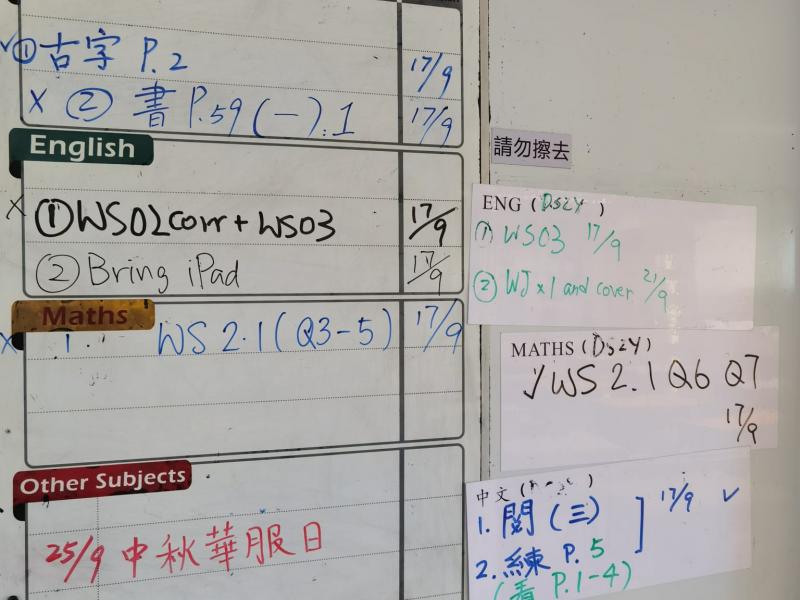 ① 古字 P.2 17/9
x ② 書 P.59 (一).1 17/9
English
x ① WS02 corr + WS03 17/9
② Bring iPad 17/9
Maths
x 1. WS 2.1 (Q3-5) 17/9
Other Subjects
25/9 中秋華服日
請勿擦去
ENG (DS2Y)
① WS03 17/9
② WJ x 1 and cover 21/9
MATHS (DS2Y)
√ WS 2.1 Q6 Q7
17/9
中文 ( )
1. 閱 (三) ] 17/9 ✓
2. 練 P. 5
(看 P.1-4)